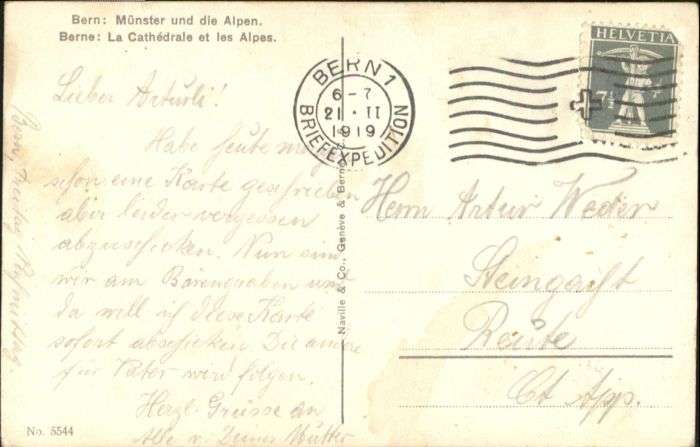 Bern: Münster und die Alpen.
Berne: La Cathédrale et les Alpes.
Lieber Arturli!
Habe heute
schon eine Karte geschrieben
aber leider vergessen
abzuschicken. Nun sind
wir am Bärengraben und
da will ich diese Karte
sofort abschicken. Die andere
für Vater wird folgen.
Herzl. Grüsse an
Alle v. Deiner Mutter
Bern, Freitag Nachmittag
No. 5544
Naville & Co., Genève & Berne
BERN 1
6-7
21·II
1919
BRIEFEXPEDITION
HELVETIA
7½
Herrn Artur
Reute
Ct App.